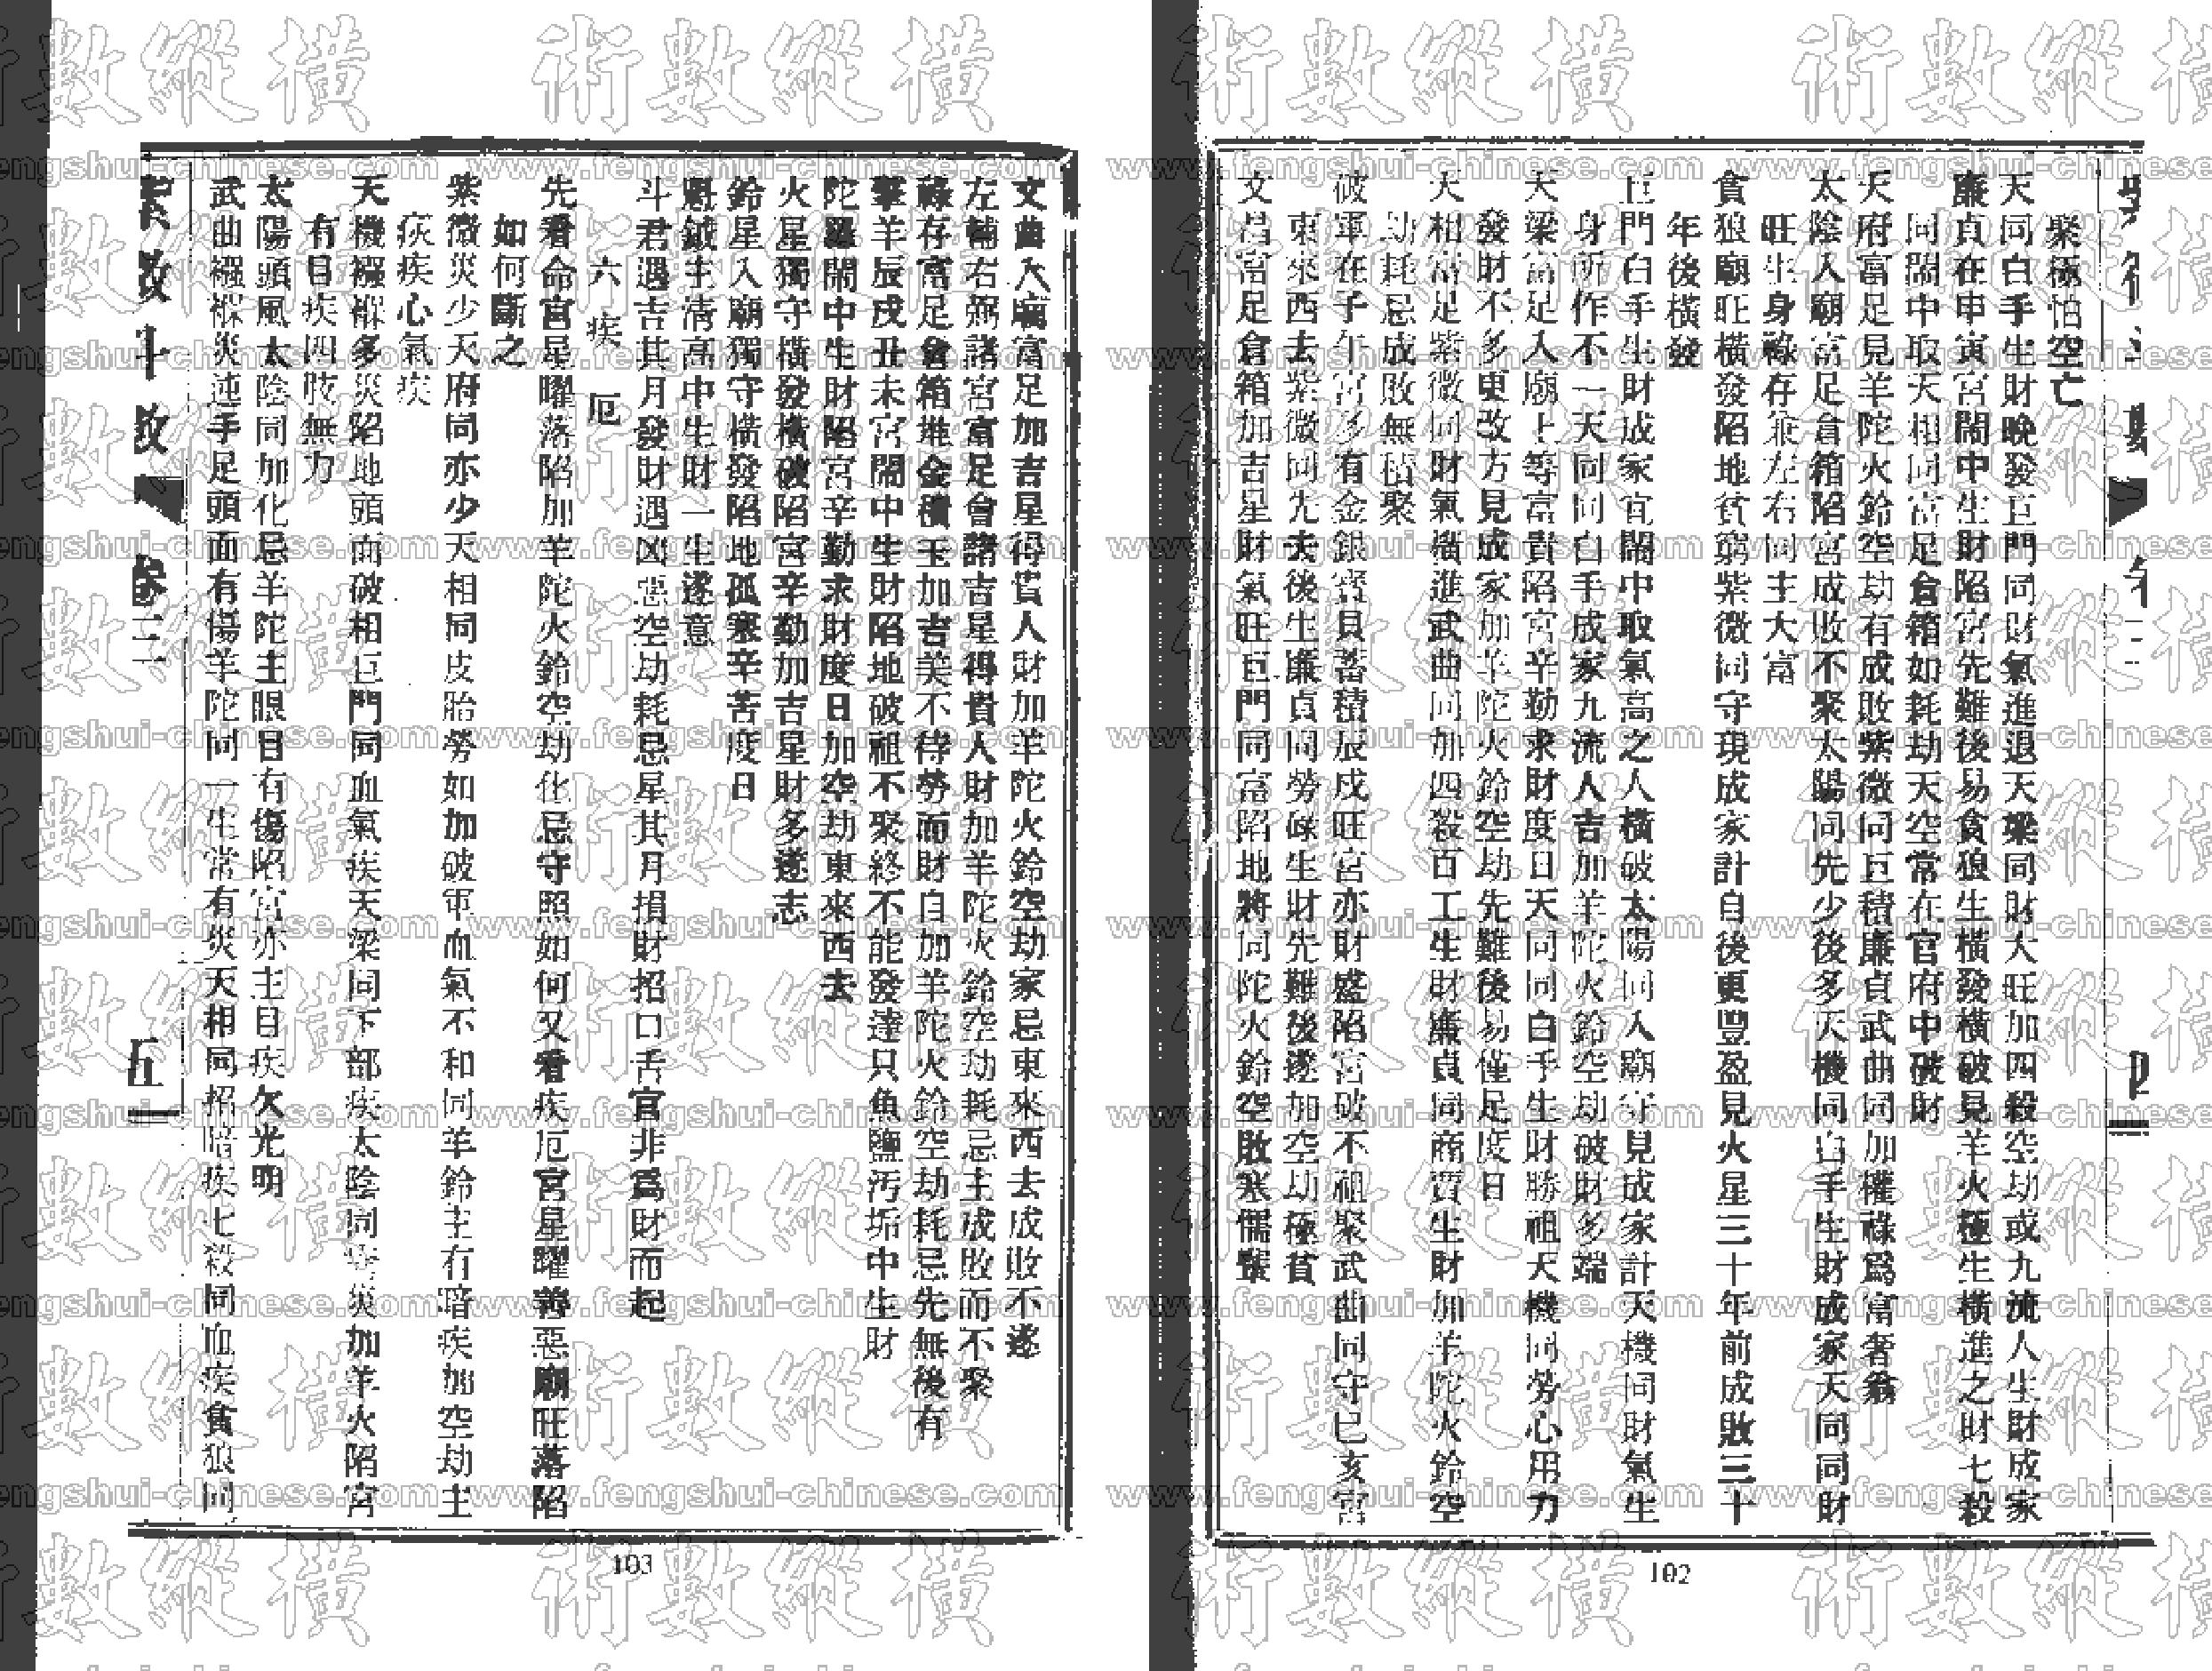 聚極怕空亡
天同白手生財晚發巨門同財氣進退天梁同財大旺加四殺空劫或九流人生財成家
廉貞在申寅宮鬧中生財陷宮先難後易貪狼生橫發橫破見羊火極生橫進之財七殺
同鬧中取天相同富足倉箱如耗劫天空常在官府中破財
天府富足見羊陀火鈴空劫有成敗紫微同巨積廉貞武曲同加權祿為富奢翁
太陰入廟富足倉箱陷宮成敗不聚太陽同先少後多天機同白手生財成家天同同財
旺生身祿存兼左右同主大富
貪狼廟旺橫發陷地貧窮紫微同守現成家計自後更豐盈見火星三十年前成敗三十
年後橫發
巨門白手生財成家宜鬧中取氣高之人橫破太陽同入廟守見成家計天機同財氣生
身所作不一天同同白手成家九流人吉加羊陀火鈴空劫破財多端
天梁富足入廟上等富貴陷宮辛勤求財度日天同同白手生財勝祖天機同勞心用力
發財不多更改方見成家加羊陀火鈴空劫先難後易僅足度日
天相富足紫微同財氣橫進武曲同加四殺百工生財廉貞同商賈生財加羊陀火鈴空
劫耗忌成敗無積聚
破軍在子午宮多有金銀寶貝蓄積辰戌旺宮亦財盛陷宮破不祖聚武曲同守巳亥宮
東來西去紫微同先去後生廉貞同勞碌生財先難後遂加空劫極貧
文昌富足倉箱加吉星財氣旺巨門同富陷地將同陀火鈴空敗寒儒輩
四
102
文曲入廟富足加吉星得貴人財加羊陀火鈴空劫家忌東來西去成敗不遂
左輔右弼諸宮富足會諸吉星得貴人財加羊陀火鈴空劫耗忌主成敗而不聚
祿存富足倉箱堆金積玉加吉美不待勞而財自加羊陀火鈴空劫耗忌先無後有
擎羊辰戌丑未宮鬧中生財陷地破祖不聚終不能發達只魚鹽污垢中生財
陀羅鬧中生財陷宮辛勤求財度日加空劫東來西去
火星獨守橫發橫破陷宮辛勤加吉星財多遂志
鈴星入廟獨守橫發陷地孤寒辛苦度日
魁鉞主清高中生財一生遂意
斗君遇吉其月發財遇凶惡空劫耗忌星其月損財招口舌官非為財而起
六 疾 厄
先看命宮星曜落陷加羊陀火鈴空劫化忌守照如何又看疾厄宮星曜善惡廟旺落陷
如何斷之
紫微災少天府同亦少天相同皮胎勞如加破軍血氣不和同羊鈴主有暗疾加空劫主
疾疾心氣疾
天機襁褓多災陷地頭面破相巨門同血氣疾天梁同下部疾太陰同瘡災加羊火陷宮
有目疾四肢無力
太陽頭風太陰同加化忌羊陀主眼目有傷陷宮亦主目疾欠光明
武曲襁褓災迍手足頭面有傷羊陀同一生常有災天相同招暗疾七殺同血疾貪狼同
紫微斗數 卷三
五
103